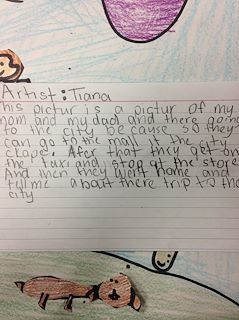 Artist: Tiana
This pictur is a pictur of my
mom and my dad and there going
to the city because so they
can go to the mall in the city
. After that they get on
the taxi and stop at the store
And then they went home and
tell me about there trip to the
city